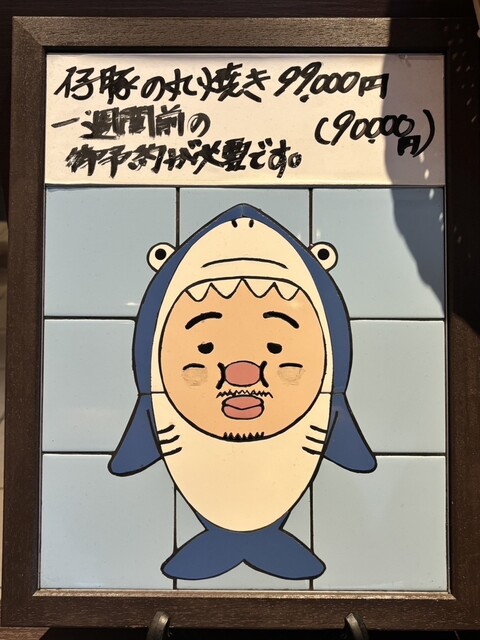 仔豚の丸焼き 99,000円
一週間前の (90,000円)
御予約が必要です。